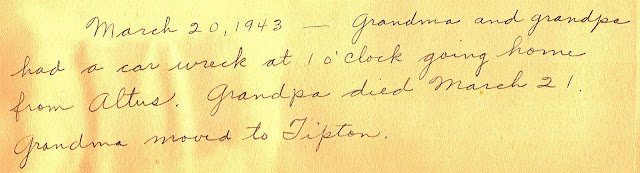 March 20, 1943 — Grandma and grandpa
had a car wreck at 1 o'clock going home
from Altus. Grandpa died March 21.
Grandma moved to Tipton.